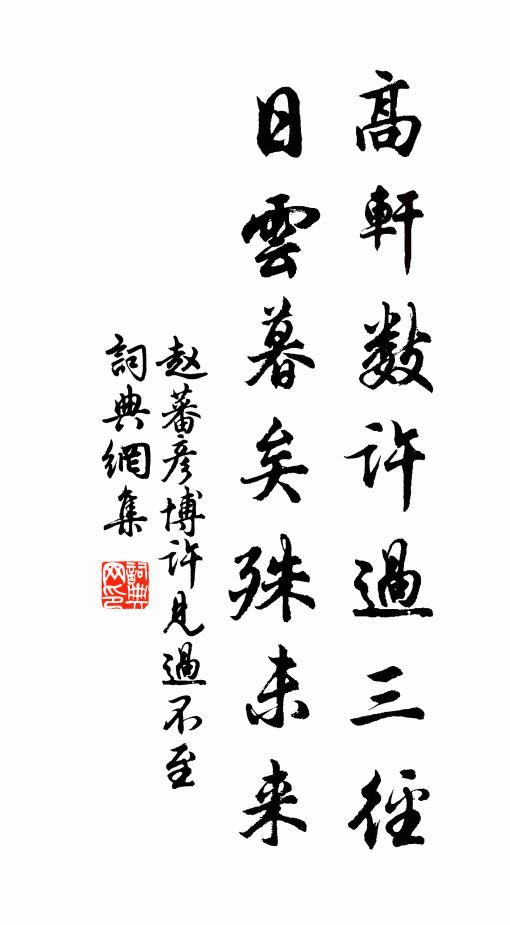 高軒數許過三徑
日雲暮矣殊未来
赵蕃彦博许见過不至
詞典網集
詞典网印